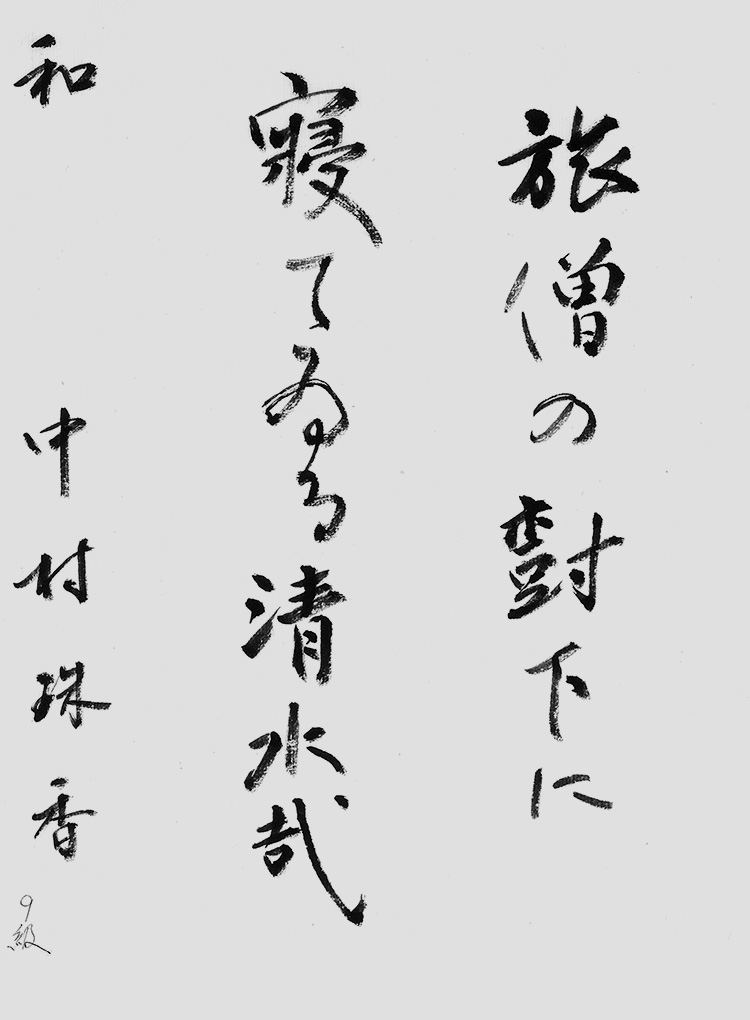 旅僧の樹下に
寝てゐる清水哉
和 中村珠香
9級